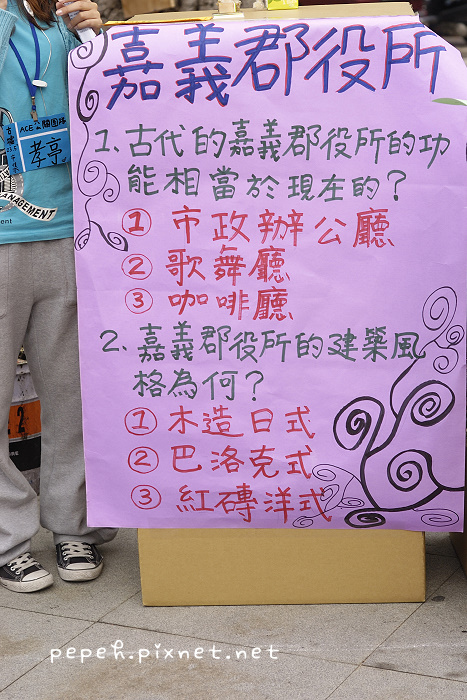 嘉義郡役所
1、古代的嘉義郡役所的功
能相當於現在的？
① 市政辦公廳
② 歌舞廳
③ 咖啡廳
2、嘉義郡役所的建築風
格為何？
① 木造日式
② 巴洛克式
③ 紅磚洋式
孝亭
MANAGEMENT
pepeh.pixnet.net